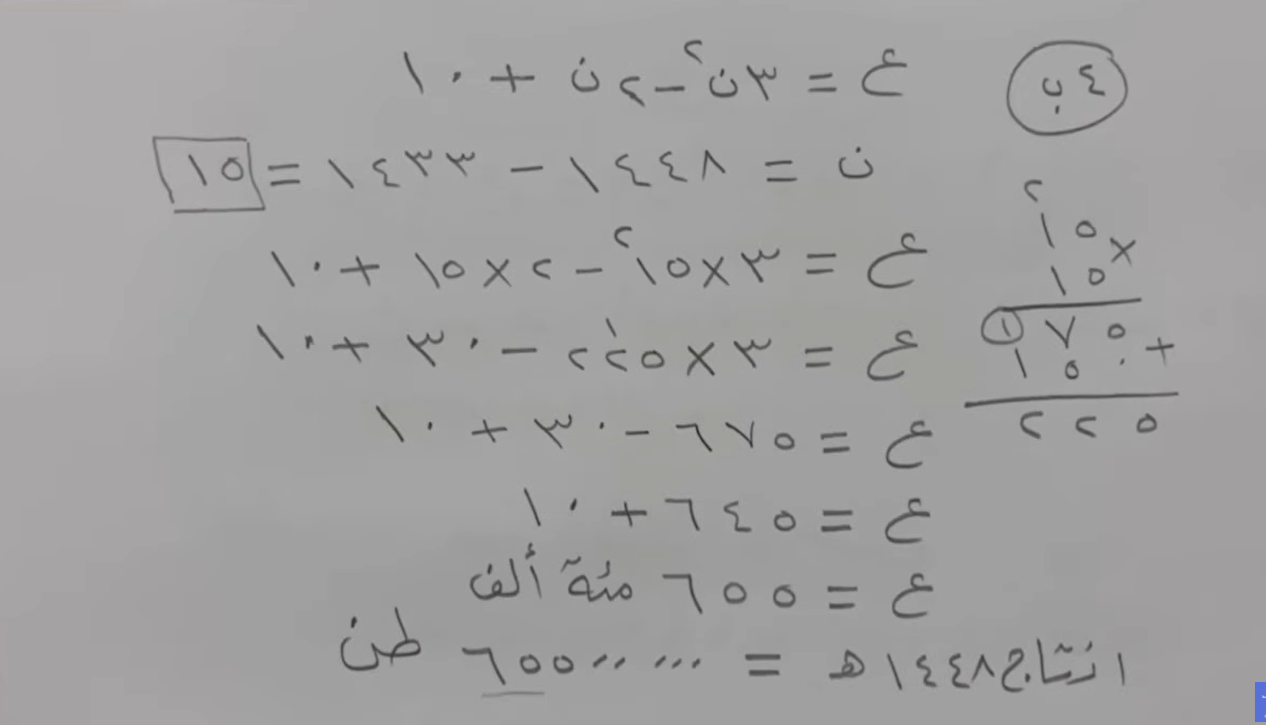 ٤ب
ع = ٣ن٢ − ٢ن + ١٠
ن = ١٤٤٨ − ١٤٣٣ = ١٥
ع = ٣ × ١٥٢ − ٢ × ١٥ + ١٠
ع = ٣ × ٢٢٥ − ٣٠ + ١٠
ع = ٦٧٥ − ٣٠ + ١٠
ع = ٦٤٥ + ١٠
ع = ٦٥٥ مئة ألف
انتاج ١٤٤٨هـ = ٦٥٥٠٠٠٠٠ طن
٢
١٥ ×
١٥
١ ٧٥ +
١٥٠
٢٢٥